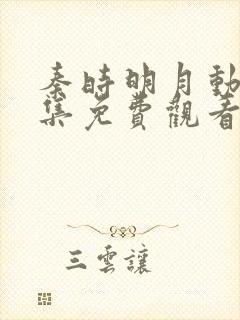 秦時明月動
集免費觀看
三雲讓